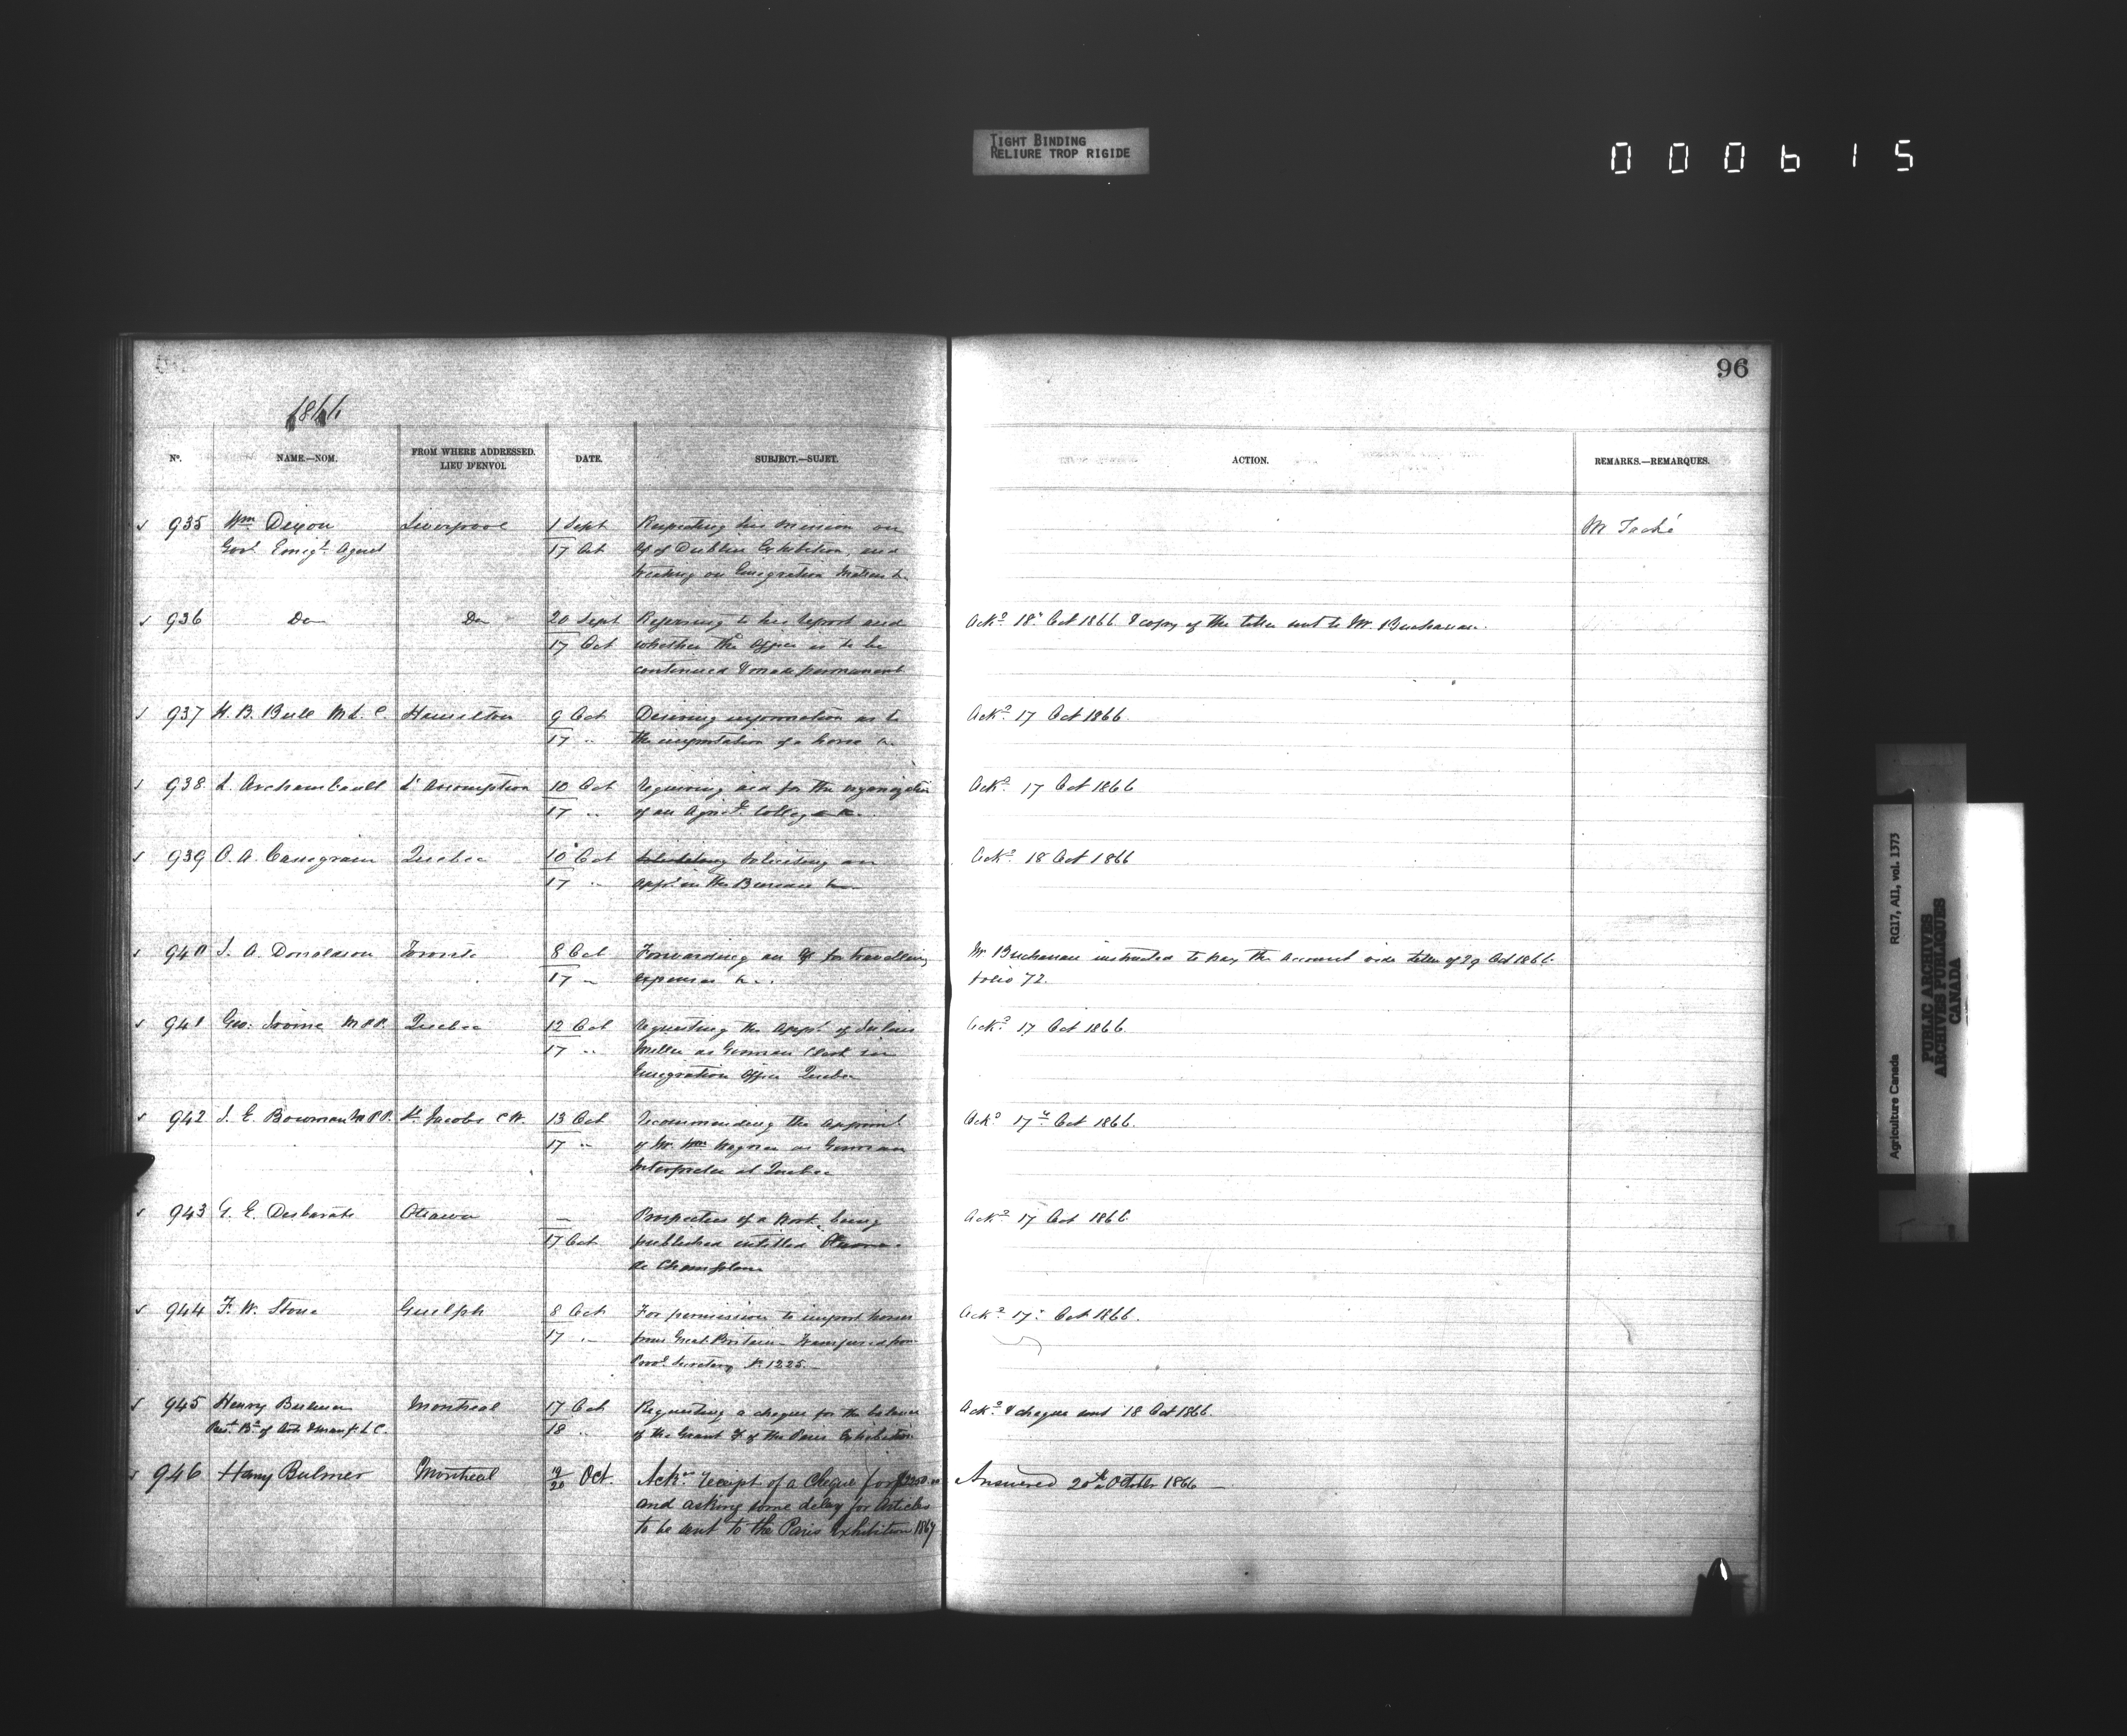 TIGHT BINDING
RELIURE TROP RIGIDE
000615
96
1866
No. NAME.—NOM. FROM WHERE ADDRESSED. LIEU D'ENVOI. DATE. SUBJECT.—SUJET. ACTION. REMARKS.—REMARQUES.
935 Wm Dixon Liverpool 1 Sept Respecting his mission on M Taché
Govt Emigt Agent 17 Oct of Dublin Exhibition, and
treating on Emigration Matters &c
936 Do Do 20 Sept Referring to his report and Ackd 18 Oct 1866 & copy of the letter sent to Mr. Buchanan.
17 Oct whether the Office is to be
continued & made permanent
937 H. B. Bull M.L.C. Hamilton 9 Oct Desiring information as to Ackd 17 Oct 1866.
17 " the importation of a horse &c
938 L. Archambault L'Assomption 10 Oct Requiring aid for the organization Ackd 17 Oct 1866
17 " of an Agricl College &c.
939 C. A. Casegrain Quebec 10 Oct Soliciting an Ackd 18 Oct 1866
17 " appt in the Bureau &c
940 J. A. Donaldson Toronto 8 Oct Forwarding an a/c for travelling Mr Buchanan instructed to pay the account vide letter of 29 Oct 1866
17 " expenses &c. folio 72.
941 Geo: Irvine M.P.P. Quebec 12 Oct Requesting the appt of Julius Ackd 17 Oct 1866.
17 " Miller as German Clerk in
Emigration Office Quebec
942 I. E. Bowman M.P.P. St Jacobs C.W. 13 Oct Recommending the appoint Ackd 17th Oct 1866.
17 " of Mr. Wm Wagner as German
Interpreter at Quebec
943 G. E. Desbarats Ottawa — Prospectus of a Work being Ackd 17 Oct 1866
17 Oct published entitled Œuvres
de Champlain
944 F. W. Stone Guelph 8 Oct For permission to import horses Ackd 17 Oct 1866.
17 " from Great Britain — Transferred from
Provl Secretary No 1225—
945 Henry Bulmer Montreal 17 Oct Requesting a cheque for the balance Ackd & cheque sent 18 Oct 1866.
Prest Bd of Arts & Manuf. L.C. 18 " of the Grant of the Paris Exhibition
946 Henry Bulmer Montreal 19/20 Oct. Ackn receipt of a Cheque for $2250.00 Answered 20th October 1866 —
and asking some delay for Articles
to be sent to the Paris Exhibition 1867
Agriculture Canada RG17, AI1, vol. 1373
PUBLIC ARCHIVES
ARCHIVES PUBLIQUES
CANADA